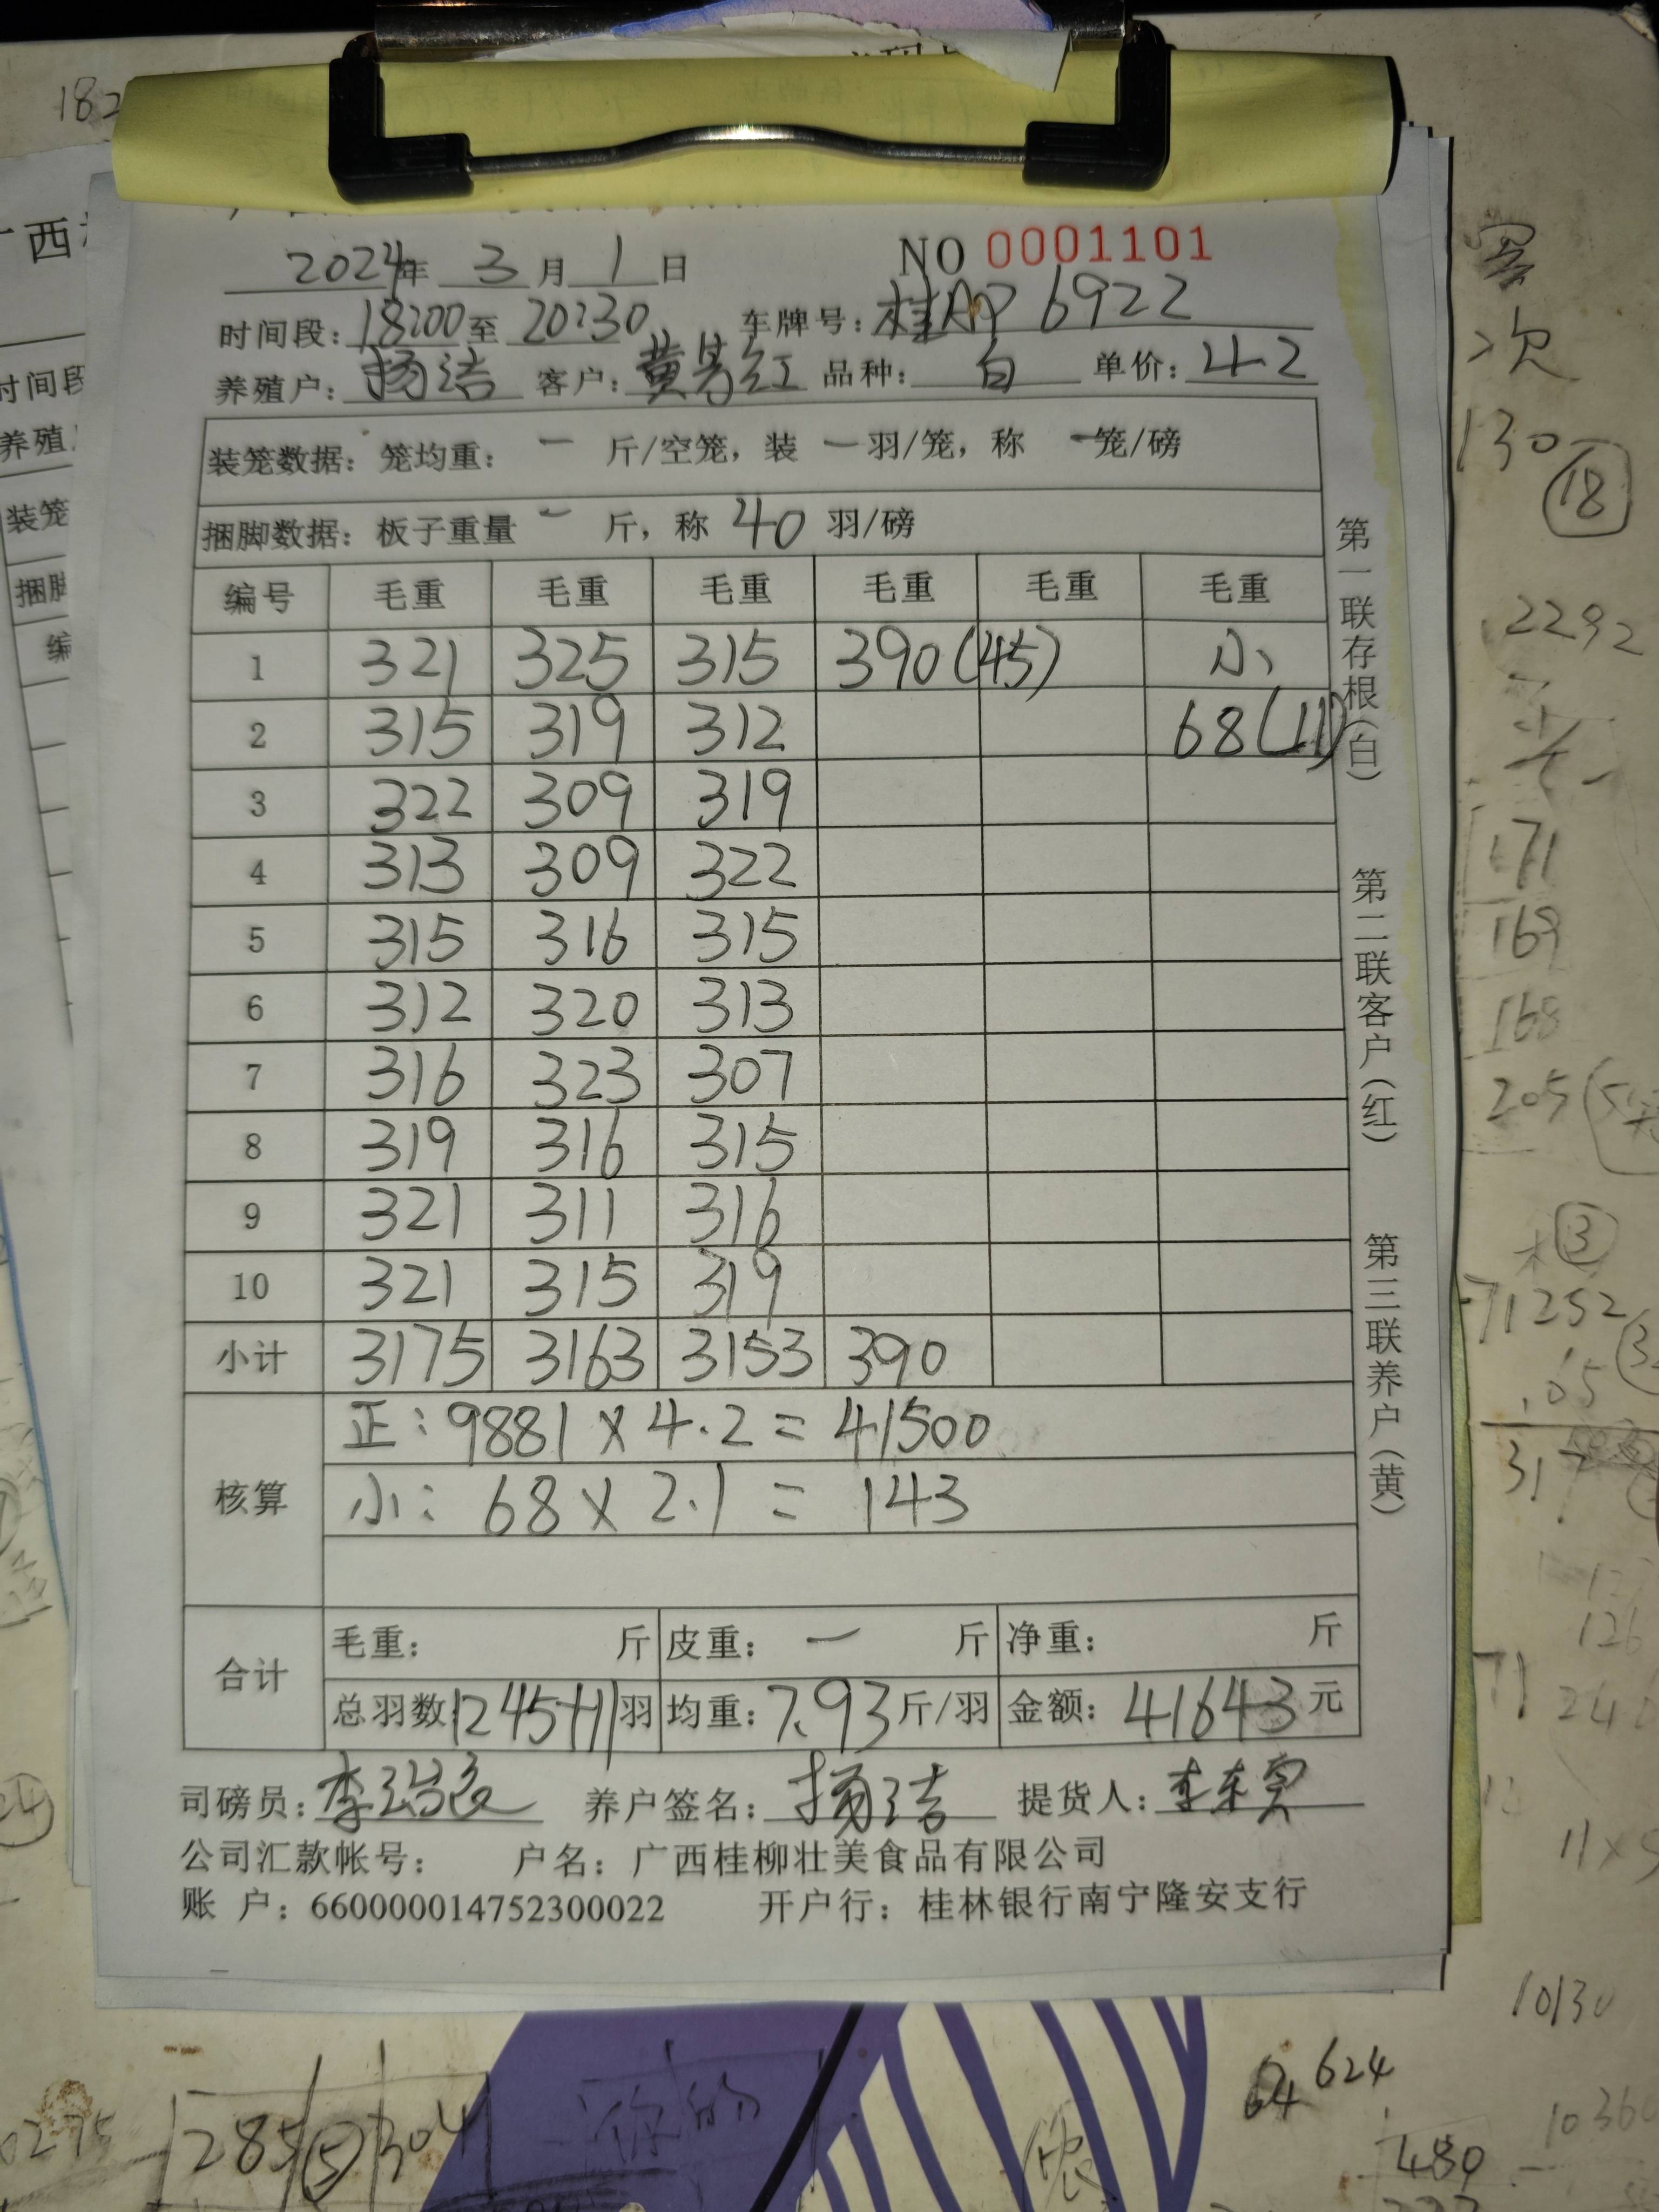 2024年 3月1日 NO 0001101
时间段：18:00至 20:30 车牌号：桂AP 6922
养殖户：杨洁 客户：黄芳红 品种：白 单价：4.2
装笼数据：笼均重：一 斤/空笼，装 一羽/笼，称 一笼/磅
捆脚数据：板子重量 一 斤，称 40 羽/磅
编号 毛重 毛重 毛重 毛重 毛重 毛重
1 321 325 315 390(45) 小
2 315 319 312 68(11)
3 322 309 319
4 313 309 322
5 315 316 315
6 312 320 313
7 316 323 307
8 319 316 315
9 321 311 316
10 321 315 319
小计 3175 3163 3153 390
核算 正：9881×4.2=41500
小：68×2.1=143
合计 毛重： 斤 皮重：一 斤 净重： 斤
总羽数：1245+11羽 均重：7.93斤/羽 金额：41643元
司磅员： 养户签名：杨洁 提货人：
公司汇款帐号： 户名：广西桂柳壮美食品有限公司
账 户：660000014752300022 开户行：桂林银行南宁隆安支行
第一联存根（白）
第二联客户（红）
第三联养户（黄）
182
广西
时间段
养殖
装笼
捆脚
编
次
130
18
2292
171
169
168
205
3
71252
10130
624
480
10360
285 5 304
你的